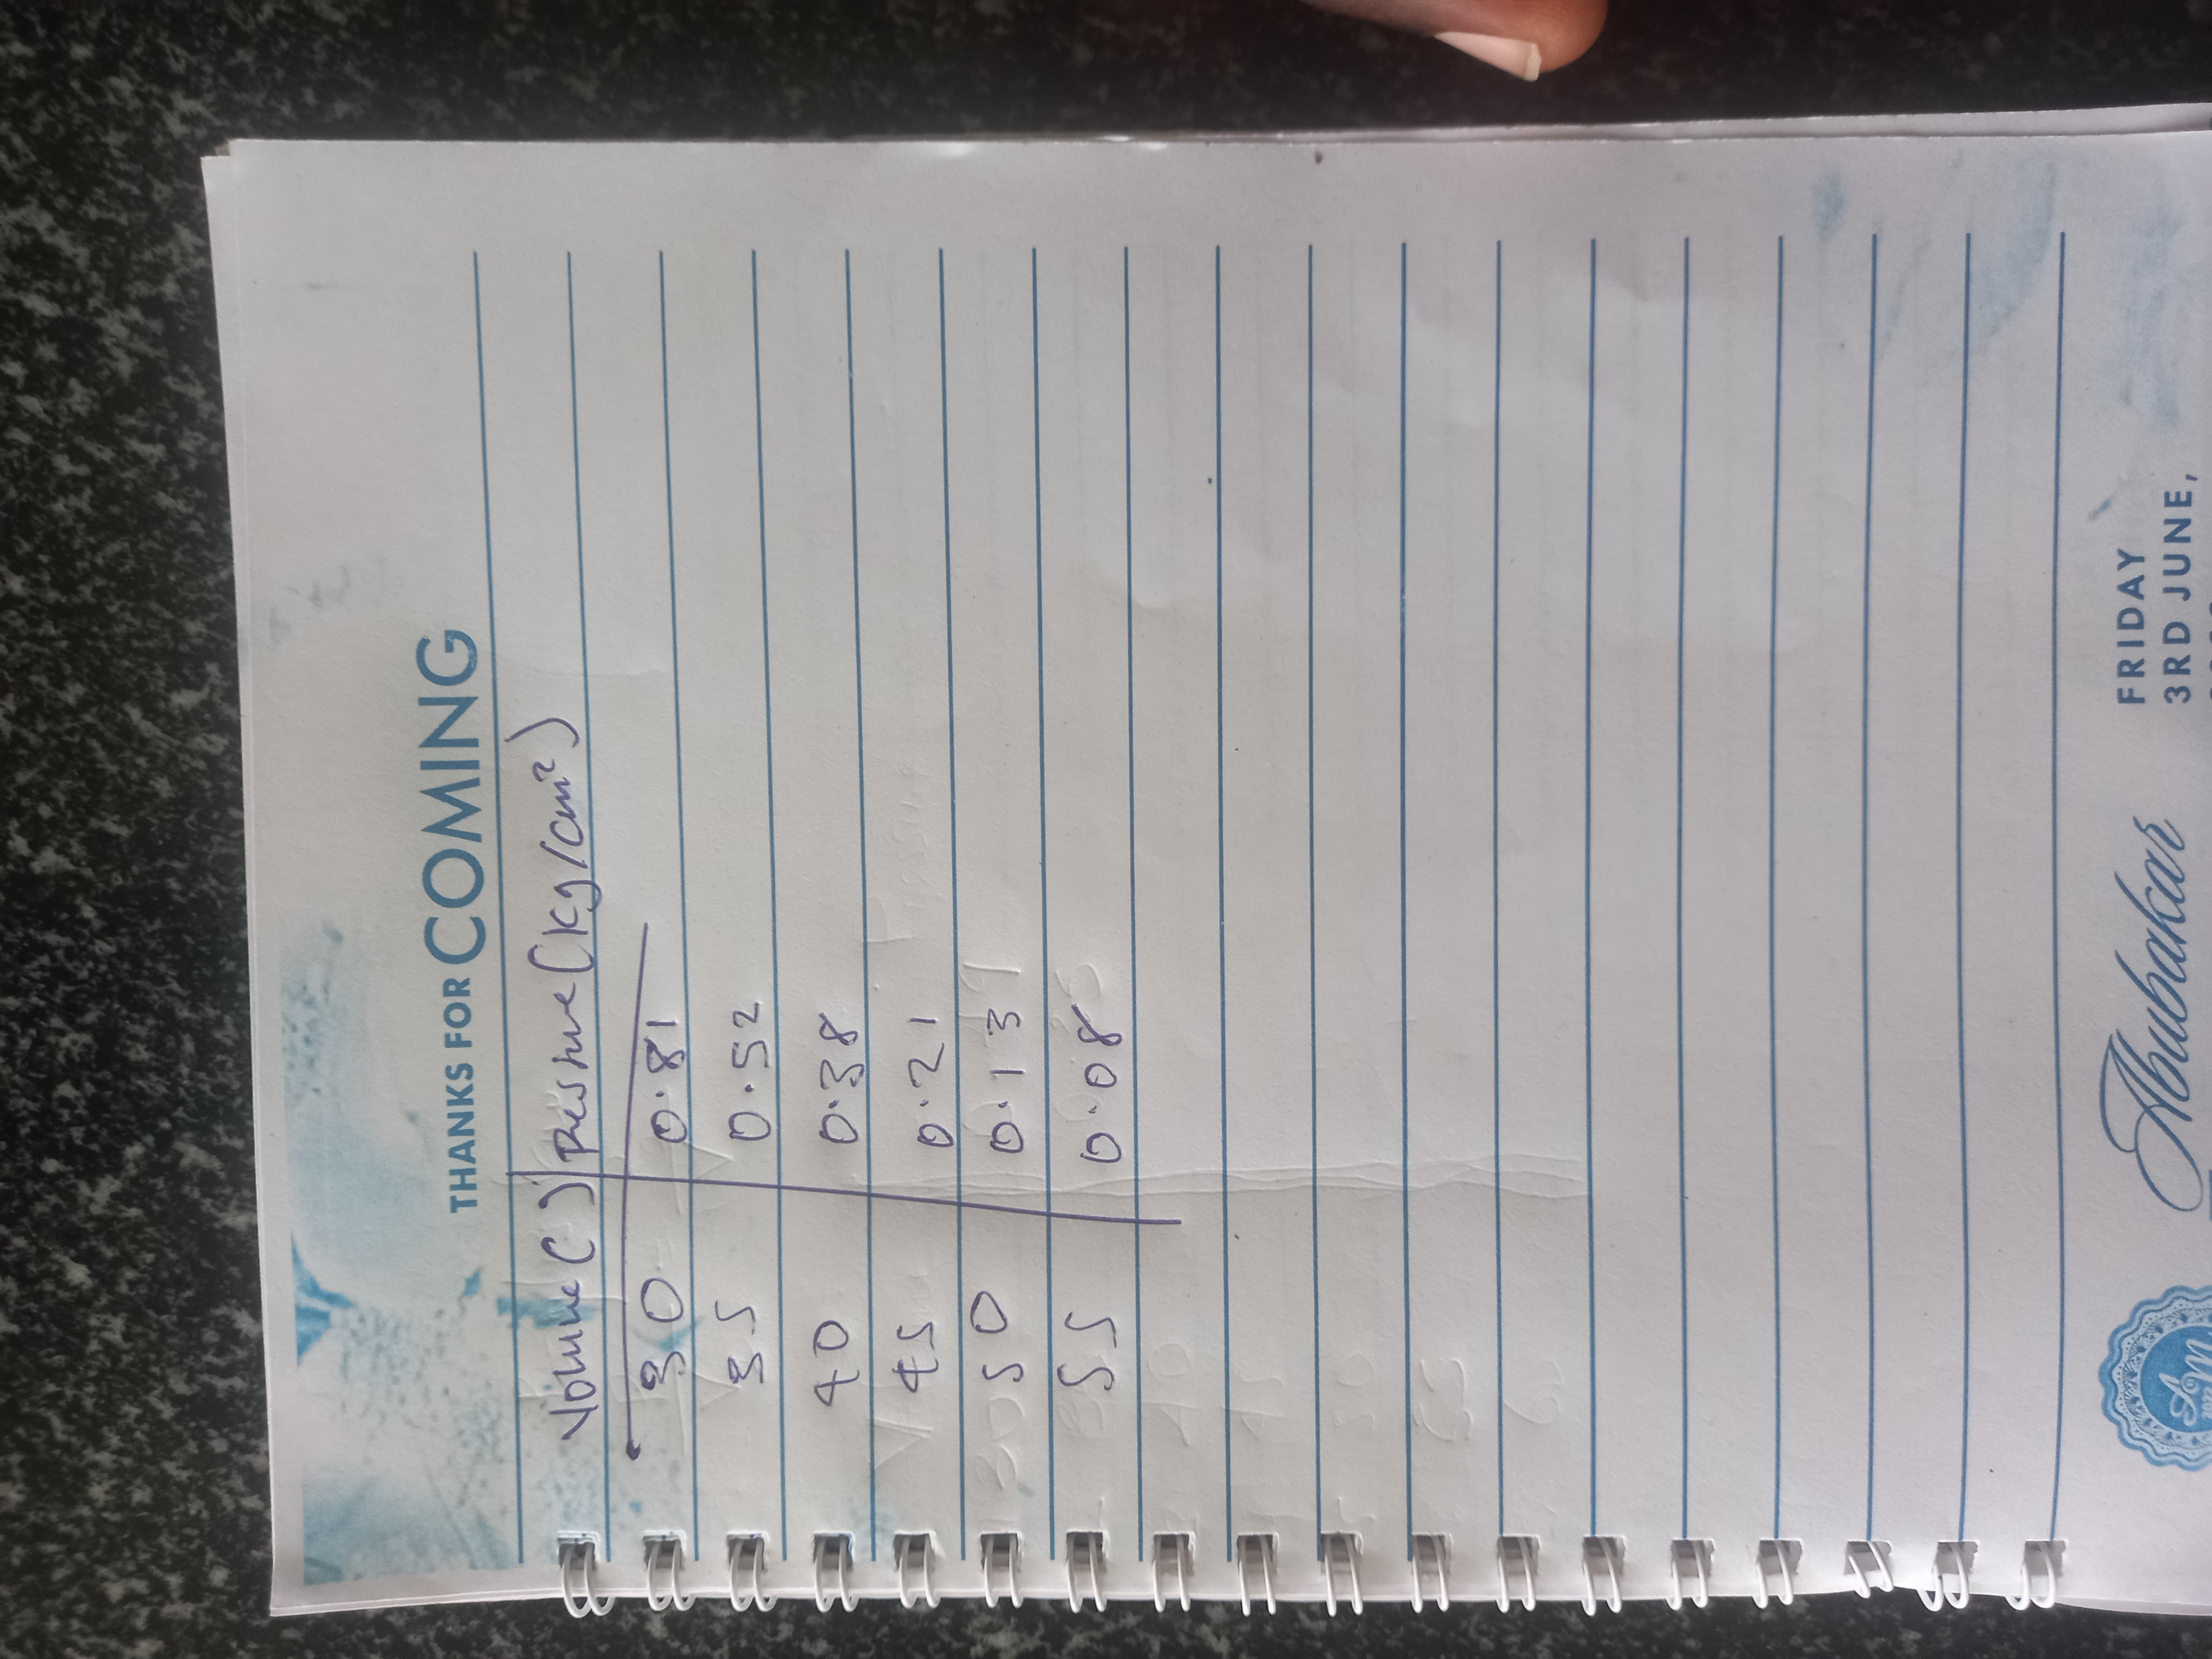 THANKS FOR COMING
Volume ( ) Pressure (kg/cm²)
30 0.81
35 0.52
40 0.38
45 0.21
50 0.13
55 0.08
Abubakar
FRIDAY
3RD JUNE,
AM
2022